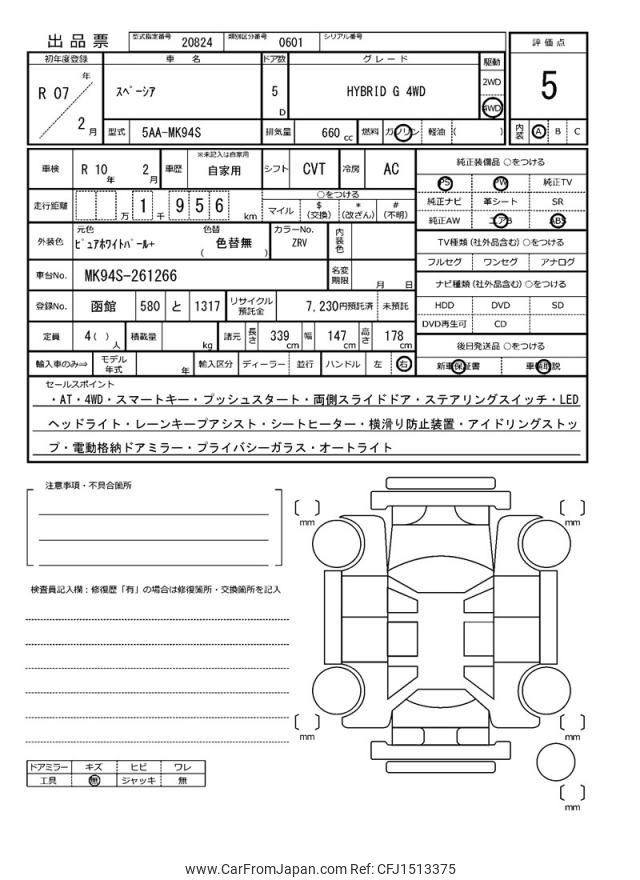 出品票 型式指定番号 20824 類別区分番号 0601 シリアル番号
評価点
5
初年度登録 車名 ドア数 グレード 駆動
R 07年 2月 スペーシア 5D HYBRID G 4WD 2WD 4WD
型式 5AA-MK94S 排気量 660cc 燃料 ガソリン 軽油 ( ) 内装 A B C
車検 R 10年 2月 車歴 ※未記入は自家用 自家用 シフト CVT 冷房 AC
走行距離 万 1千 9 5 6 km ○をつける
マイル $(交換) *(改ざん) #(不明)
外装色 元色 ピュアホワイトパール+ 色替 (色替無 カラーNo. ZRV 内装色
車台No. MK94S-261266 名変期限 月 日
登録No. 函館 580 と 1317 リサイクル預託金 7,230円預託済 未預託
定員 4( )人 積載量 kg 諸元 長さ 339cm 幅 147cm 高さ 178cm
輸入車のみ⇒ モデル年式 年 輸入区分 ディーラー・並行 ハンドル 左 右
純正装備品 ○をつける
PS PW 純正TV
純正ナビ 革シート SR
純正AW エアB ABS
TV種類(社外品含む)○をつける
フルセグ ワンセグ アナログ
ナビ種類(社外品含む)○をつける
HDD DVD SD
DVD再生可 CD
後日発送品 ○をつける
新車保証書 車輌取説
セールスポイント
・AT・4WD・スマートキー・プッシュスタート・両側スライドドア・ステアリングスイッチ・LED
ヘッドライト・レーンキープアシスト・シートヒーター・横滑り防止装置・アイドリングストッ
プ・電動格納ドアミラー・プライバシーガラス・オートライト
注意事項・不具合箇所
検査員記入欄：修復歴「有」の場合は修復箇所・交換箇所を記入
ドアミラー キズ ヒビ ワレ
工具 無 ジャッキ 無
mm
mm
mm
mm
mm
www.CarFromJapan.com Ref: CFJ1513375